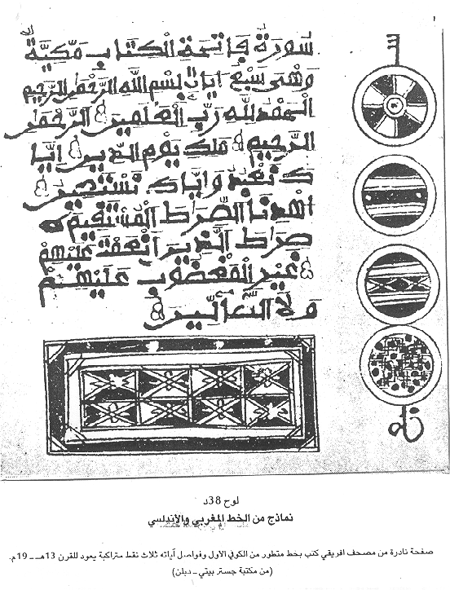 ١
سورة فاتحة الكتاب مكية
وهى سبع ايات بسم الله الرحمن الرحيم
الحمد لله رب العلمين الرحمن
الرحيم ملك يوم الدين ايا
ك نعبد واياك نستعين
اهدنا الصراط المستقيم
صراط الذين انعمت عليهم
غير المغضوب عليهم
ولا الضالين
لوح 38د
نماذج من الخط المغربي والاندلسي
صفحة نادرة من مصحف افريقي كتب بخط متطور من الكوفي الاول وفواصل آياته ثلاث نقط متراكبة يعود للقرن 13هـ ــ 19م.
(من مكتبة جستر بيتي ــ دبلن)